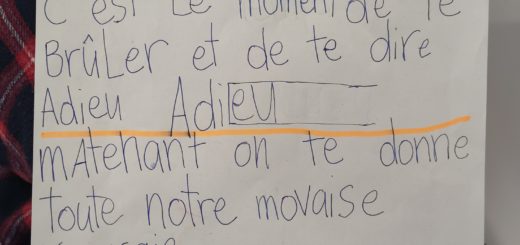 C'est Le moment de te
BrûLer et de te dire
Adieu Adieu
mAtenant on te donne
toute notre movaise